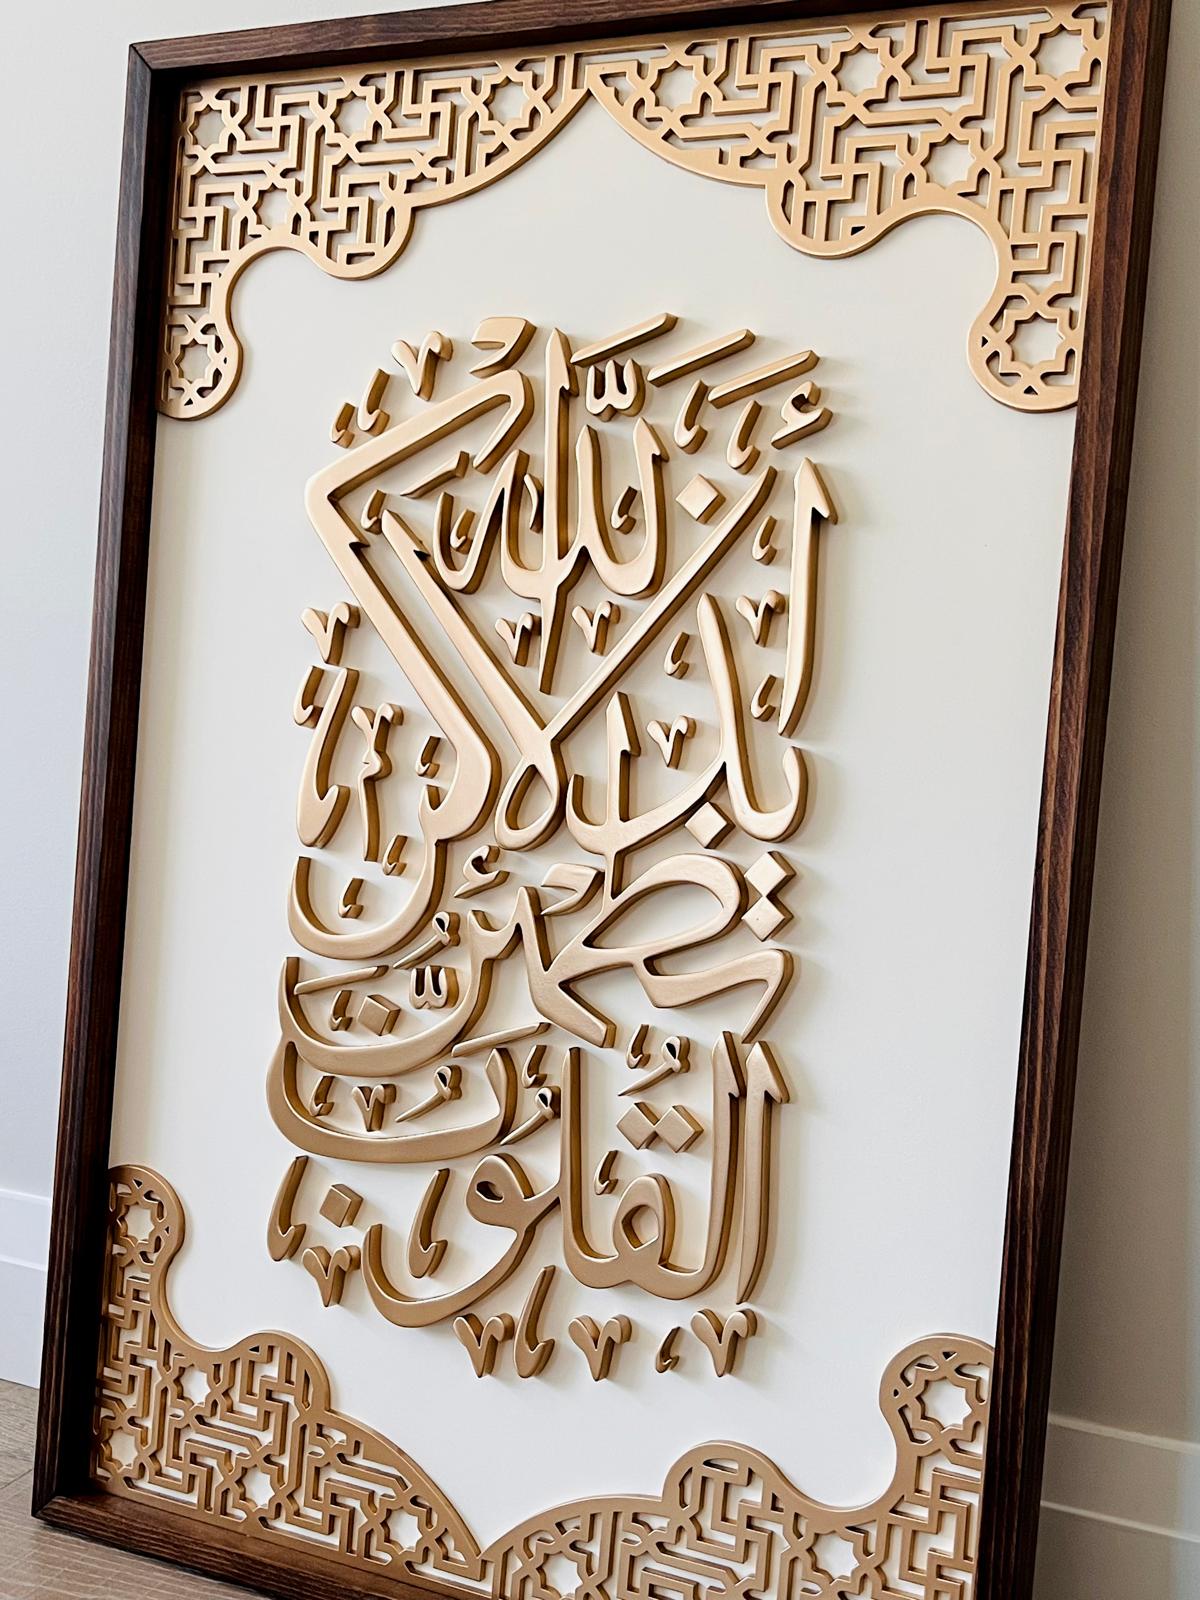 أَلَا بِذِكْرِ اللَّهِ
تَطْمَئِنُّ
الْقُلُوبُ